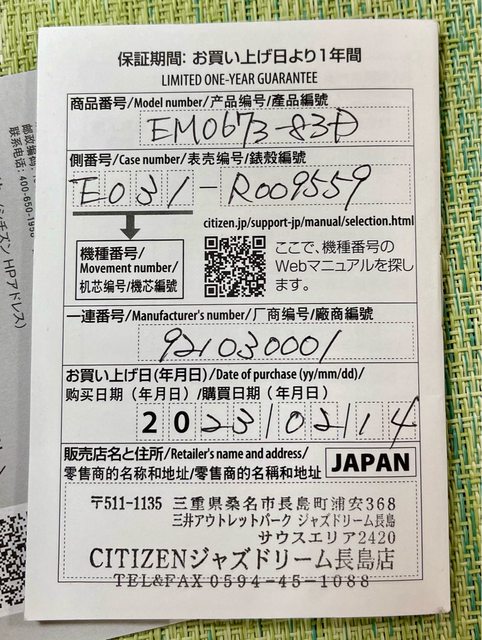 保証期間: お買い上げ日より1年間
LIMITED ONE-YEAR GUARANTEE
商品番号/Model number/产品编号/產品編號
EM0673-83D
側番号/Case number/表壳编号/錶殻編號
E031-R009559
citizen.jp/support-jp/manual/selection.html
機種番号/
Movement number/
机芯编号/機芯編號
ここで、機種番号の
Webマニュアルを探し
ます。
一連番号/Manufacturer's number/厂商编号/廠商編號
921030001
お買い上げ日(年月日)/Date of purchase (yy/mm/dd)/
购买日期（年月日）/購買日期（年月日）
2023/02/14
販売店名と住所/Retailer's name and address/
零售商的名称和地址/零售商的名稱和地址
JAPAN
〒511-1135 三重県桑名市長島町浦安368
三井アウトレットパーク ジャズドリーム長島
サウスエリア2420
CITIZENジャズドリーム長島店
TEL&FAX 0594-45-1088
邮政编码:
联系电话: 400-650-1958
シチズン HPアドレス)